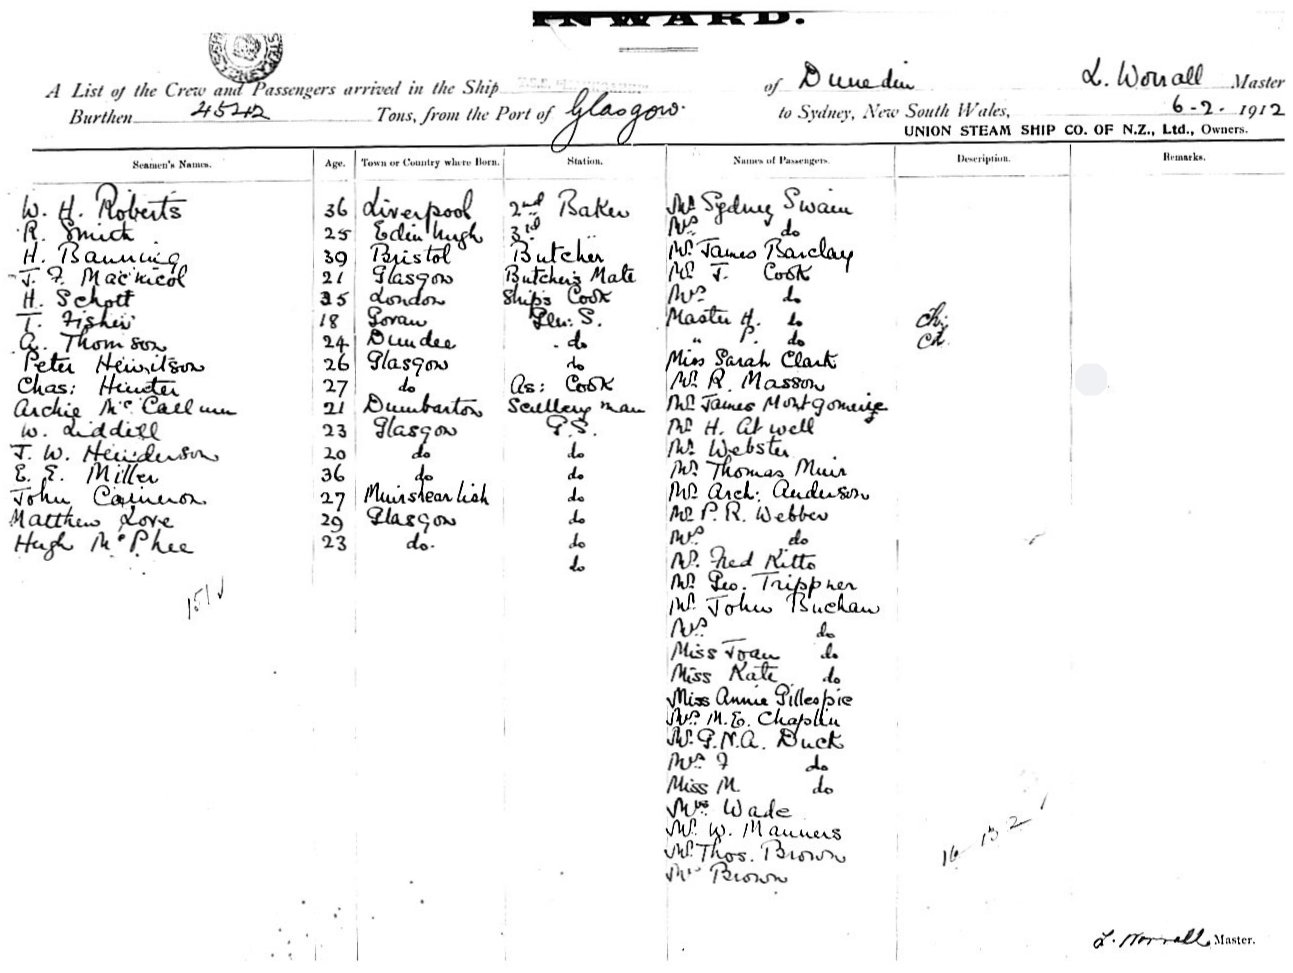 INWARD.
A List of the Crew and Passengers arrived in the Ship of Dunedin L. Worrall Master
Burthen 4542 Tons, from the Port of Glasgow. to Sydney, New South Wales, 6-2-1912
UNION STEAM SHIP CO. OF N.Z., Ltd., Owners.
Seamen's Names. Age. Town or Country where Born. Station. Names of Passengers. Description. Remarks.
W. H. Roberts 36 Liverpool 2nd Baker Mr Sydney Swain
R. Smith 25 Edinburgh 3rd " Mrs do
H. Banning 39 Bristol Butcher Mr James Barclay
J. F. MacNicol 21 Glasgow Butcher's Mate Mr J. Cook
H. Schott 35 London Ships Cook Mrs do
T. Fisher 18 Govan Gen: S. Master H. do ch:
A. Thomson 24 Dundee do " P. do ch.
Peter Hewitson 26 Glasgow do Miss Sarah Clark
Chas: Hunter 27 do As: Cook Mr R. Masson
Archie McCallum 21 Dumbarton Scullery man Mr James Montgomerie
W. Liddell 23 Glasgow G.S. Mr H. Atwell
J. W. Henderson 20 do do Mr Webster
E. E. Miller 36 do do Mr Thomas Muir
John Cameron 27 do Mr Arch: Anderson
Matthew Love 29 Glasgow do Mr P. R. Webber
Hugh McPhee 23 do. do Mrs do
do Mr. Fred Kitto
Mr. Geo. Trippner
151 Mr. John Buchan
Mrs do
Miss Joan do
Miss Kate do
Miss Annie Gillespie
Mrs. M. E. Chaplin
Mr. G. N. A. Duck
Mrs F do
Miss M. do
Mrs Wade
Mr. W. Manners
Mr. Thos. Brown 16 13 2
Brown
L. Worrall Master.